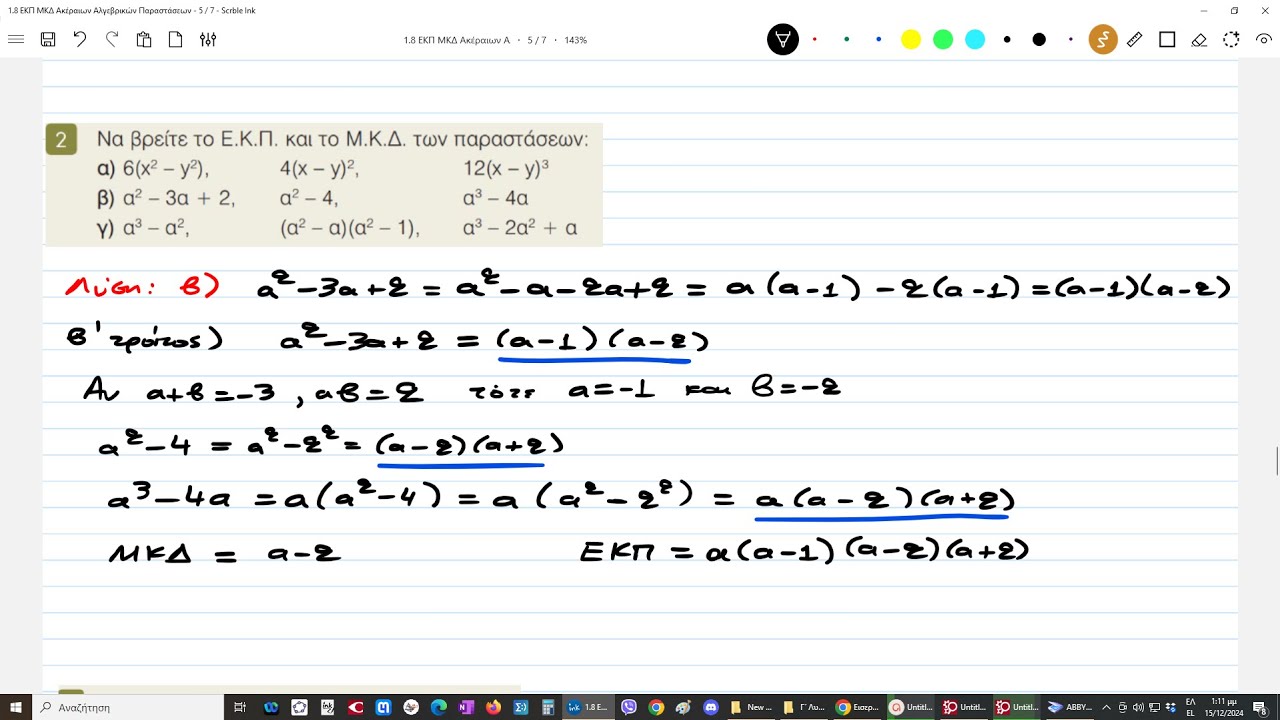 1.8 ΕΚΠ ΜΚΔ Ακέραιων Αλγεβρικών Παραστάσεων - 5 / 7 - Scrble Ink
1.8 ΕΚΠ ΜΚΔ Ακέραιων Α • 5 / 7 • 143%
2 Να βρείτε το Ε.Κ.Π. και το Μ.Κ.Δ. των παραστάσεων:
α) 6(x² – y²), 4(x – y)², 12(x – y)³
β) α² – 3α + 2, α² – 4, α³ – 4α
γ) α³ – α², (α² – α)(α² – 1), α³ – 2α² + α
Λύση: β) α²-3α+2 = α²-α-2α+2 = α(α-1)-2(α-1)=(α-1)(α-2)
β' τρόπος) α²-3α+2 = (α-1)(α-2)
Αν α+β=-3, αβ=2 τότε α=-1 και β=-2
α²-4 = α²-2² = (α-2)(α+2)
α³-4α = α(α²-4) = α(α²-2²) = α(α-2)(α+2)
ΜΚΔ = α-2 ΕΚΠ = α(α-1)(α-2)(α+2)
Αναζήτηση 1.8 Ε... New ... Γ Λυ... Εισερ... Untitl... Untitl... Untitl... ABBY... ΕΛ 1:11 μμ
EL 15/12/2024